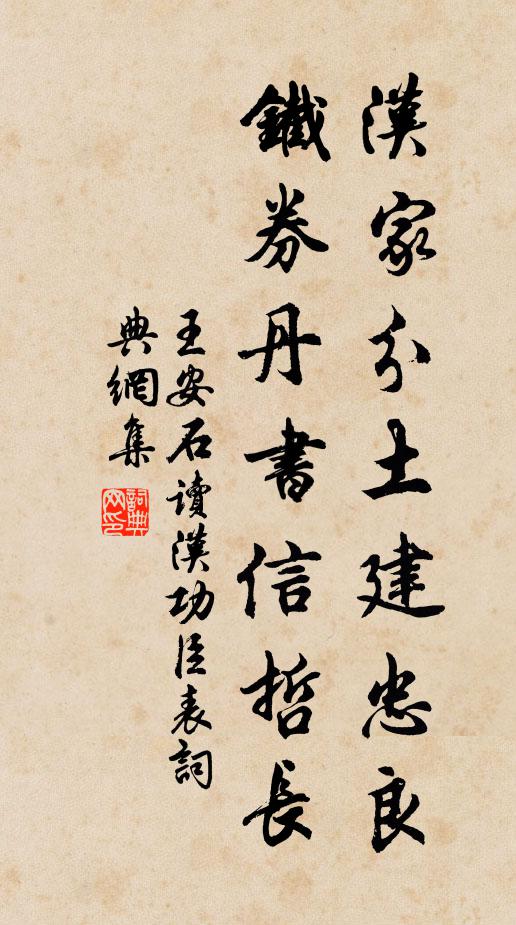 漢家分土建忠良
鐵券丹書信哲長
王安石讀漢功臣表詞
典網集
詞典網印